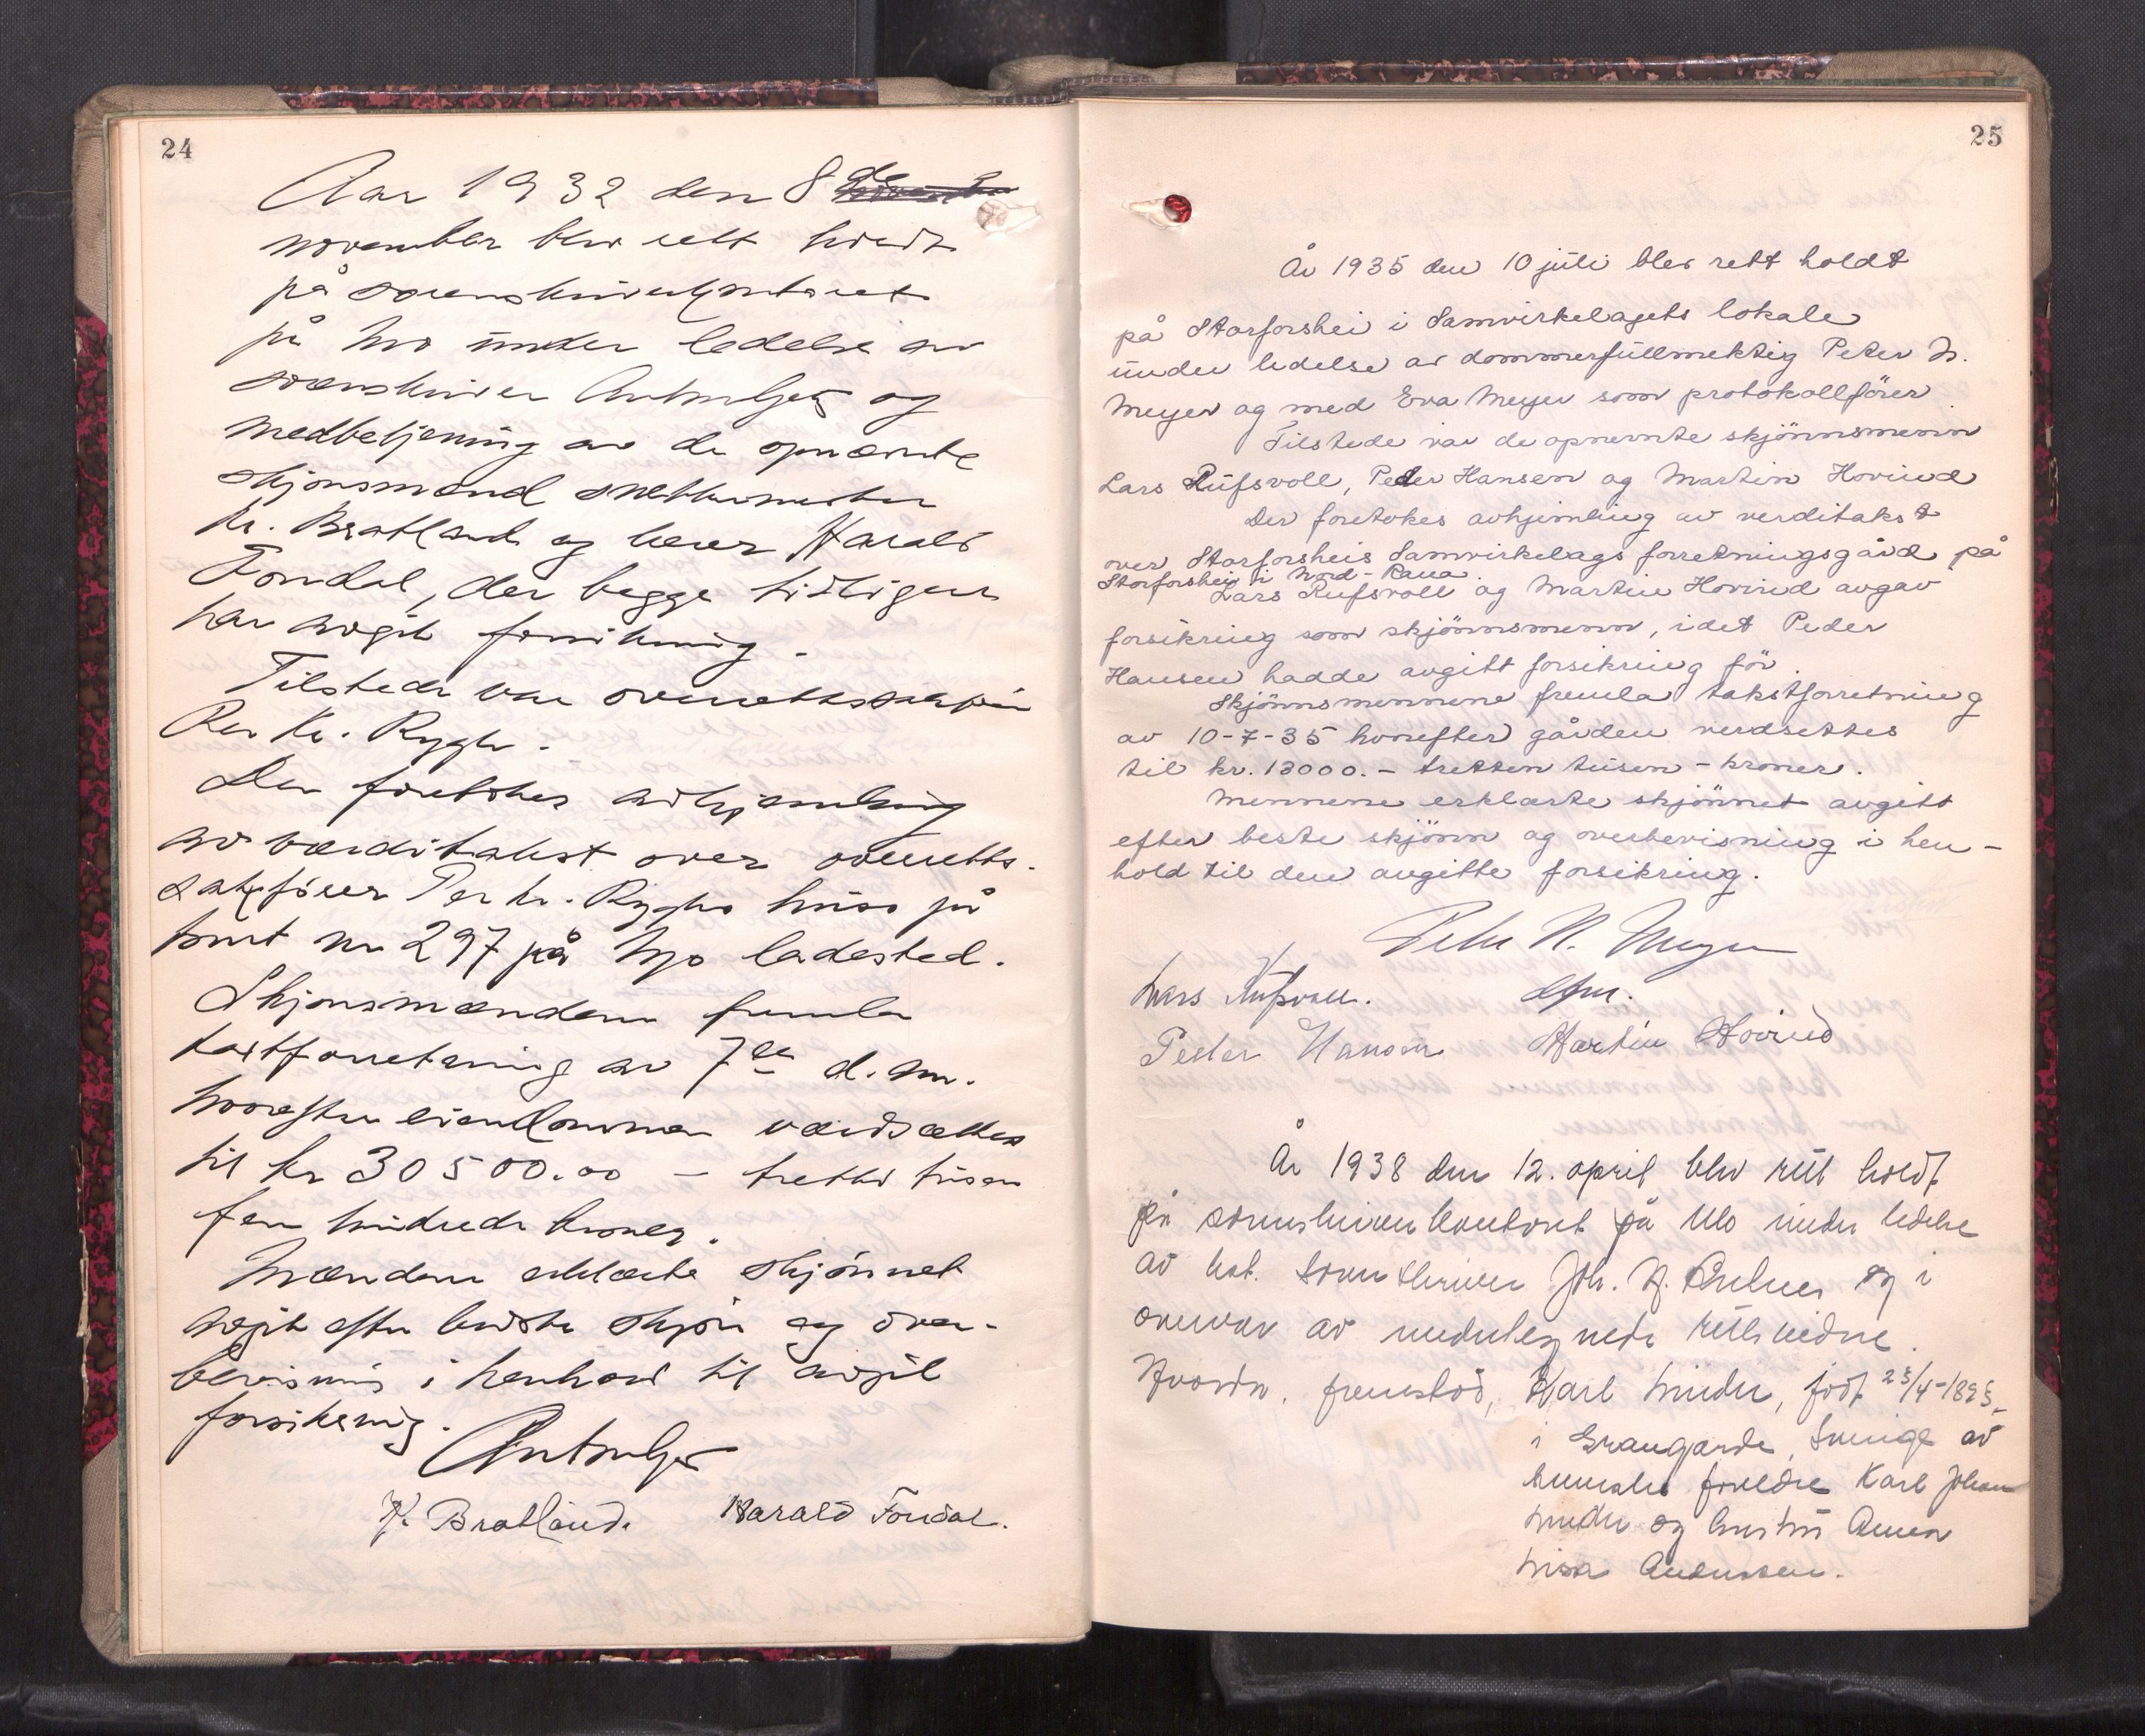 24
Aar 1932 den 8de
november blev rett holdt
på sorenskriverkontoret
på Mo under ledelse av
sorenskriver og
medbetjening av de opnævnte
skjønsmænd snekkermester
Kr. Bratland og lærer Harald
Fondal, der begge tidligere
har avgit forsikring.
Tilstede var overrettssakfører
Per Kr. Rygh.
Der foretokes avhjemling
av værditakst over overretts-
sakfører Per Kr. Ryghs huse på
tomt nr 297 på Mo ladested.
Skjønsmændene fremla
takstforretning av 7de d. m.
hvorefter eiendommen værdsættes
til kr 30500.00 – tretti tusen
fem hundrede kroner.
Mændene erklærte skjønnet
avgit efter bedste skjøn og over-
bevisning i henhold til avgit
forsikring.
K. Bratland. Harald Fondal.
25
År 1935 den 10 juli blev rett holdt
på Storforshei i Samvirkelagets lokale
under ledelse av dommerfullmektig Peter N.
Meyer og med Eva Meyer som protokollfører
Tilstede var de opnevnte skjønnsmenn
Lars Rufsvoll, Peder Hansen og Martin Hovind
Der foretokes avhjemling av verditakst
over Storforsheis Samvirkelags forretningsgård på
Storforshei i Nord-Rana
Lars Rufsvoll og Martin Hovind avgav
forsikring som skjønnsmenn, idet Peder
Hansen hadde avgitt forsikring før.
Skjønnsmennene fremla takstforretning
av 10-7-35 hvorefter gården verdsettes
til kr. 13000.- tretten tusen – kroner.
Mennene erklærte skjønnet avgitt
efter beste skjønn og overbevisning i hen-
hold til den avgitte forsikring.
Peter N. Meyer
Lars Rufsvoll. dfm.
Peder Hansen Martin Hovind
År 1938 den 12. april blev rett holdt
på sorenskriverkontoret på Mo under ledelse
av kst. sorenskriver Joh. N. og i
overvær av undertegnede rettsvidne.
Hvorda. fremstod, Karl Linder, født 23/4-1895
i Grangärde, Sverige av
svenske foreldre Karl Johan
Linder og hustru Anna
Lisa Andersson.